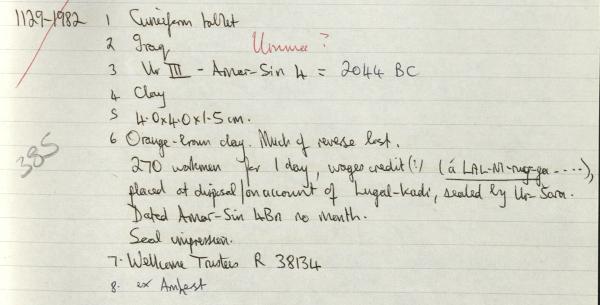 1129-1982 1 Cuneiform tablet
2 Iraq Umma?
3 Ur III - Amar-Sin 4 = 2044 BC
4 Clay
5 4.0x4.0x1.5 cm.
6 Orange-brown clay. Much of reverse lost.
385
270 workmen for 1 day, wages credit(?) (á LAL-NI- ....),
placed at disposal/on account of Lugal-kadi, sealed by Ur-Šara.
Dated Amar-Sin 4 no month.
Seal impression.
7. Wellcome Trustees R 38134
8. ex Amherst